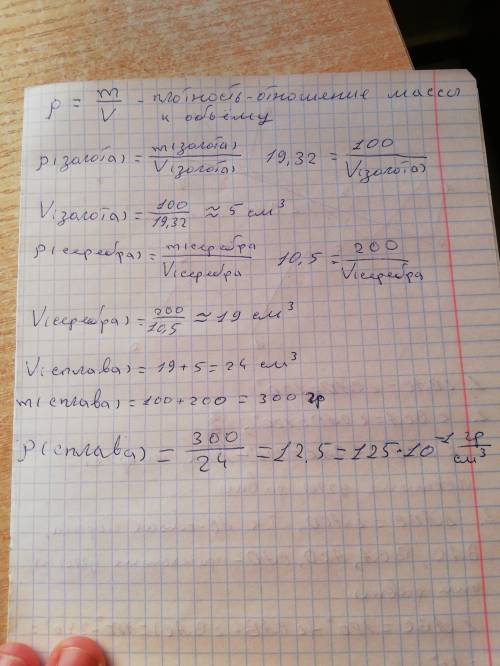 ρ = m/V - плотность - отношение массы
к объёму
ρ(золота) = m(золота)/V(золота) 19,32 = 100/V(золота)
V(золота) = 100/19,32 ≈ 5 см³
ρ(серебра) = m(серебра/V(серебра) 10,5 = 200/V(серебра
V(серебра) = 200/10,5 ≈ 19 см³
V(сплава) = 19 + 5 = 24 см³
m(сплава) = 100 + 200 = 300 гр
ρ(сплава) = 300/24 = 12,5 = 125·10⁻¹ гр/см³